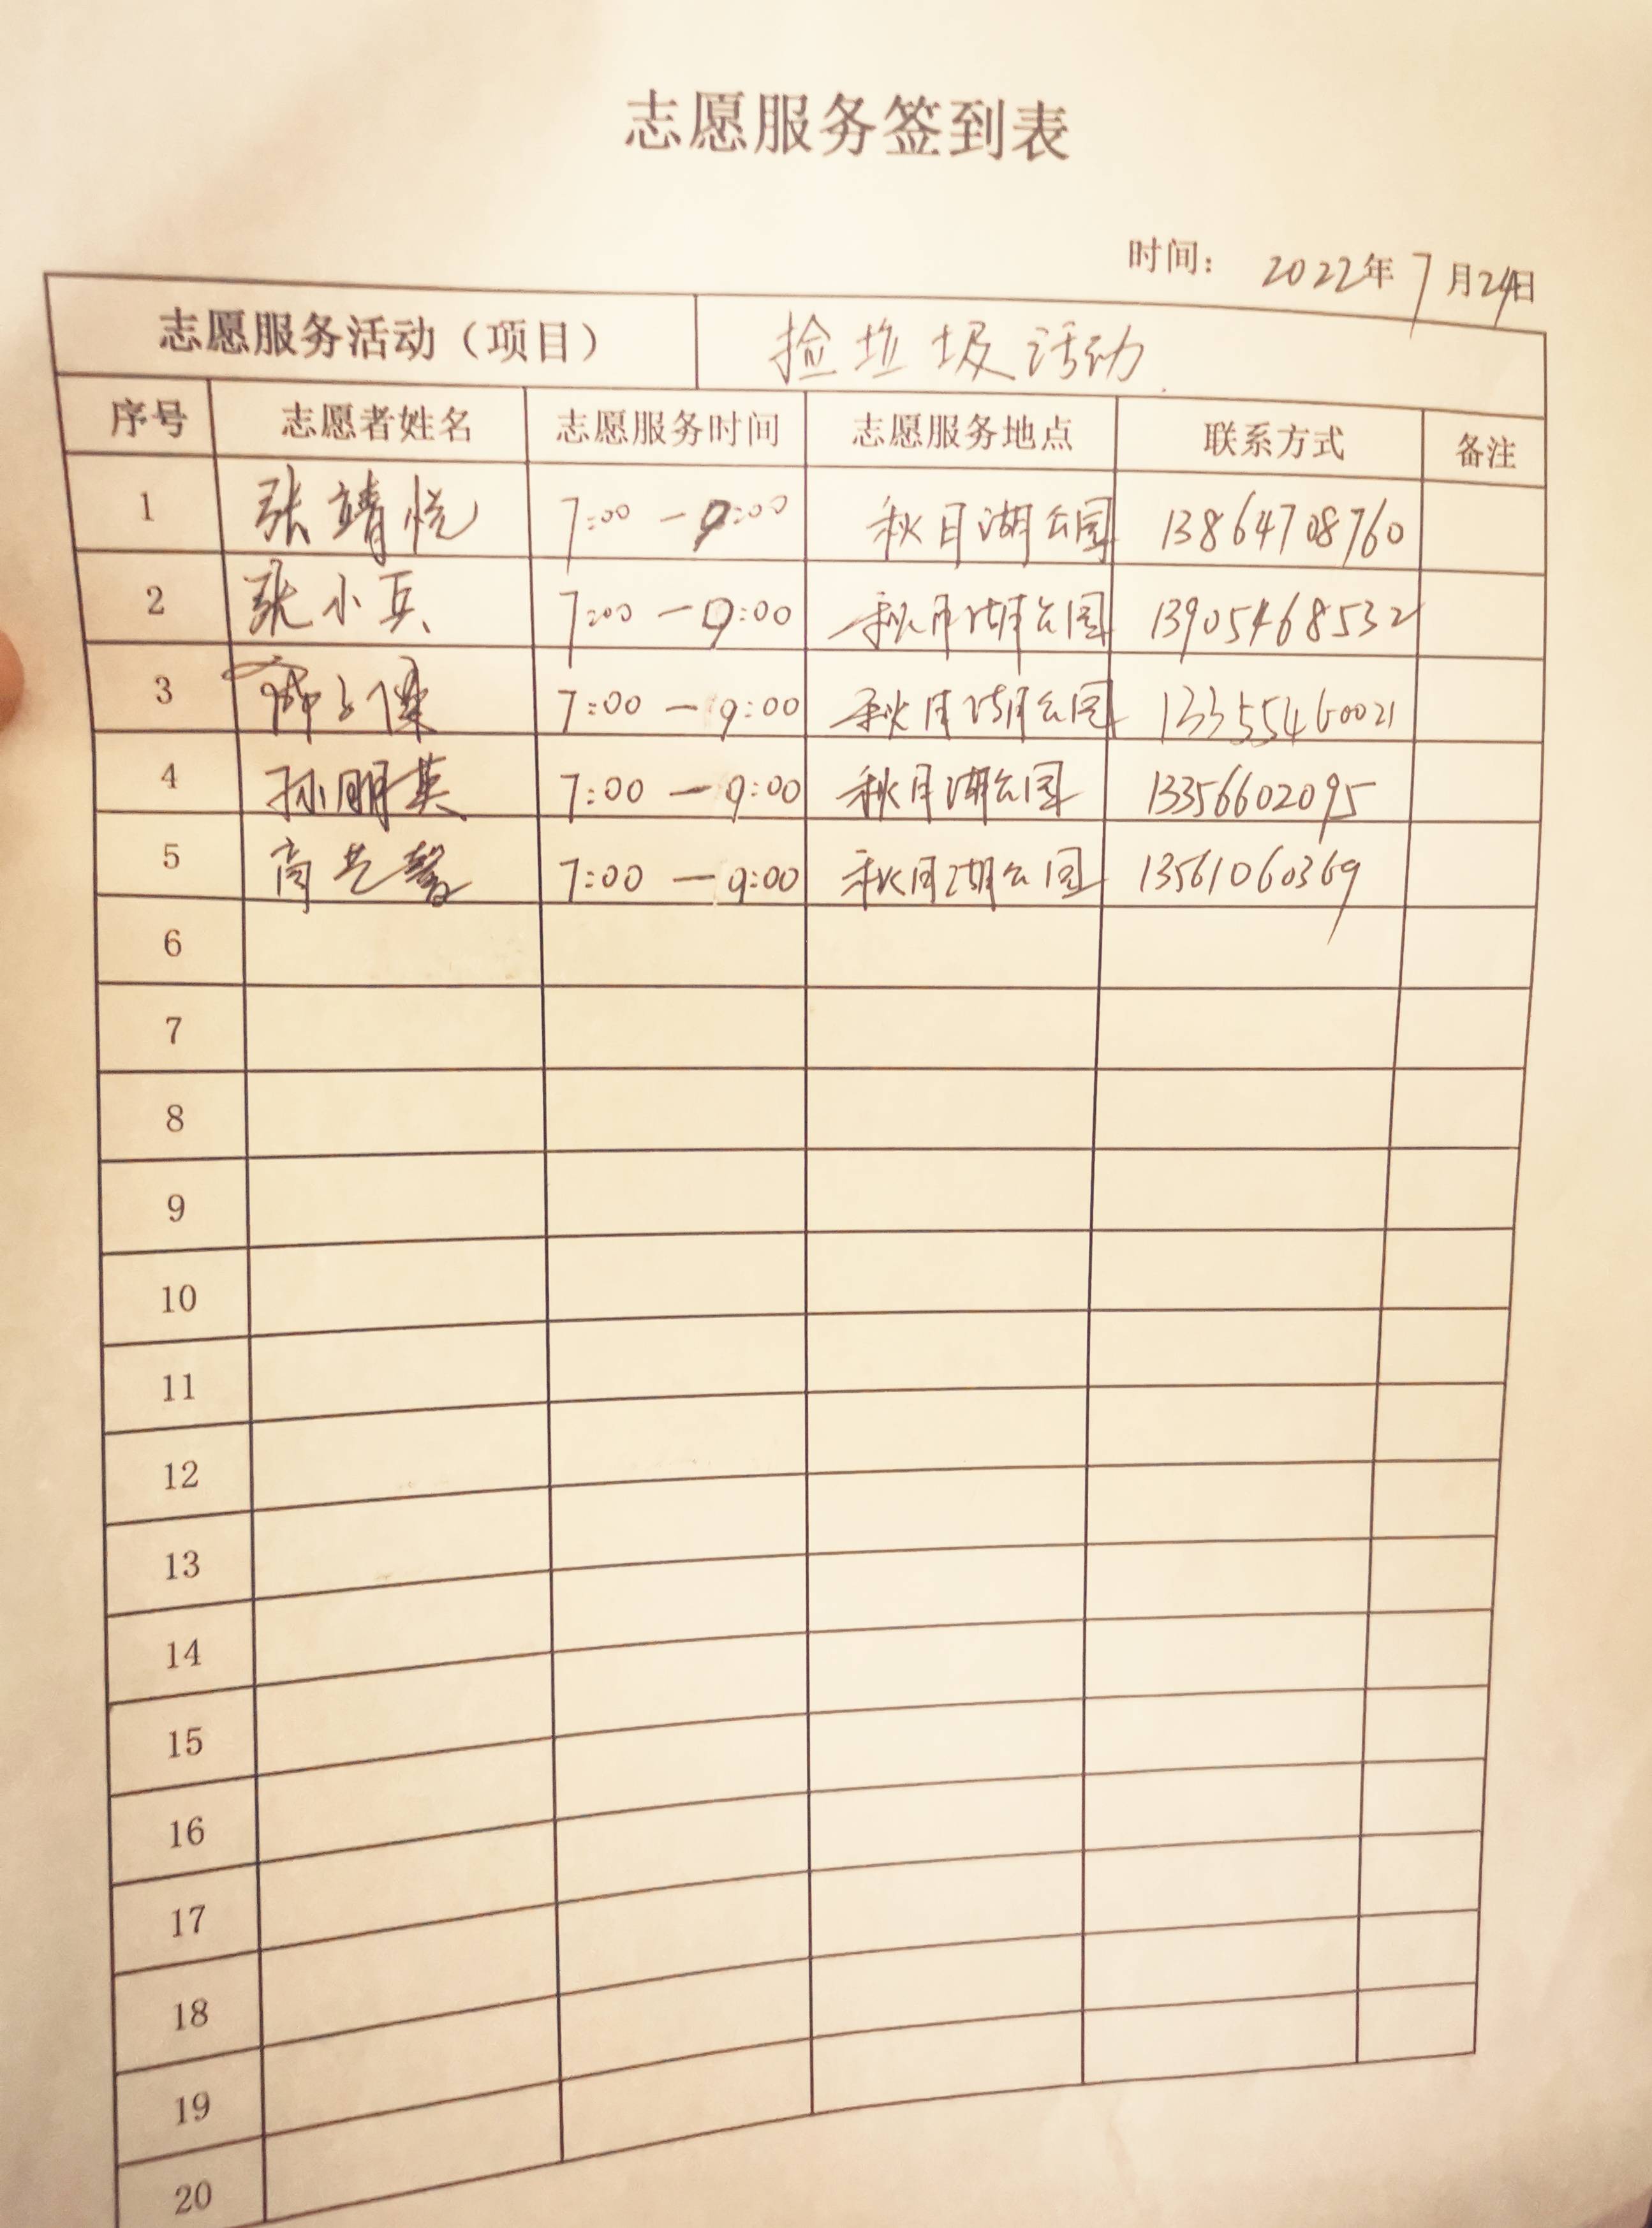 志愿服务签到表
时间： 2022年7月24日
志愿服务活动（项目） 捡垃圾活动
序号 志愿者姓名 志愿服务时间 志愿服务地点 联系方式 备注
1 张靖悦 7:00 — 9:00 秋月湖公园 13864708760
2 张小兵 7:00 — 9:00 秋月湖公园 13905468532
3 7:00 — 9:00 秋月湖公园 13355460021
4 孙朋英 7:00 — 9:00 秋月湖公园 13356602095
5 商艺馨 7:00 — 9:00 秋月湖公园 13561060369
6
7
8
9
10
11
12
13
14
15
16
17
18
19
20